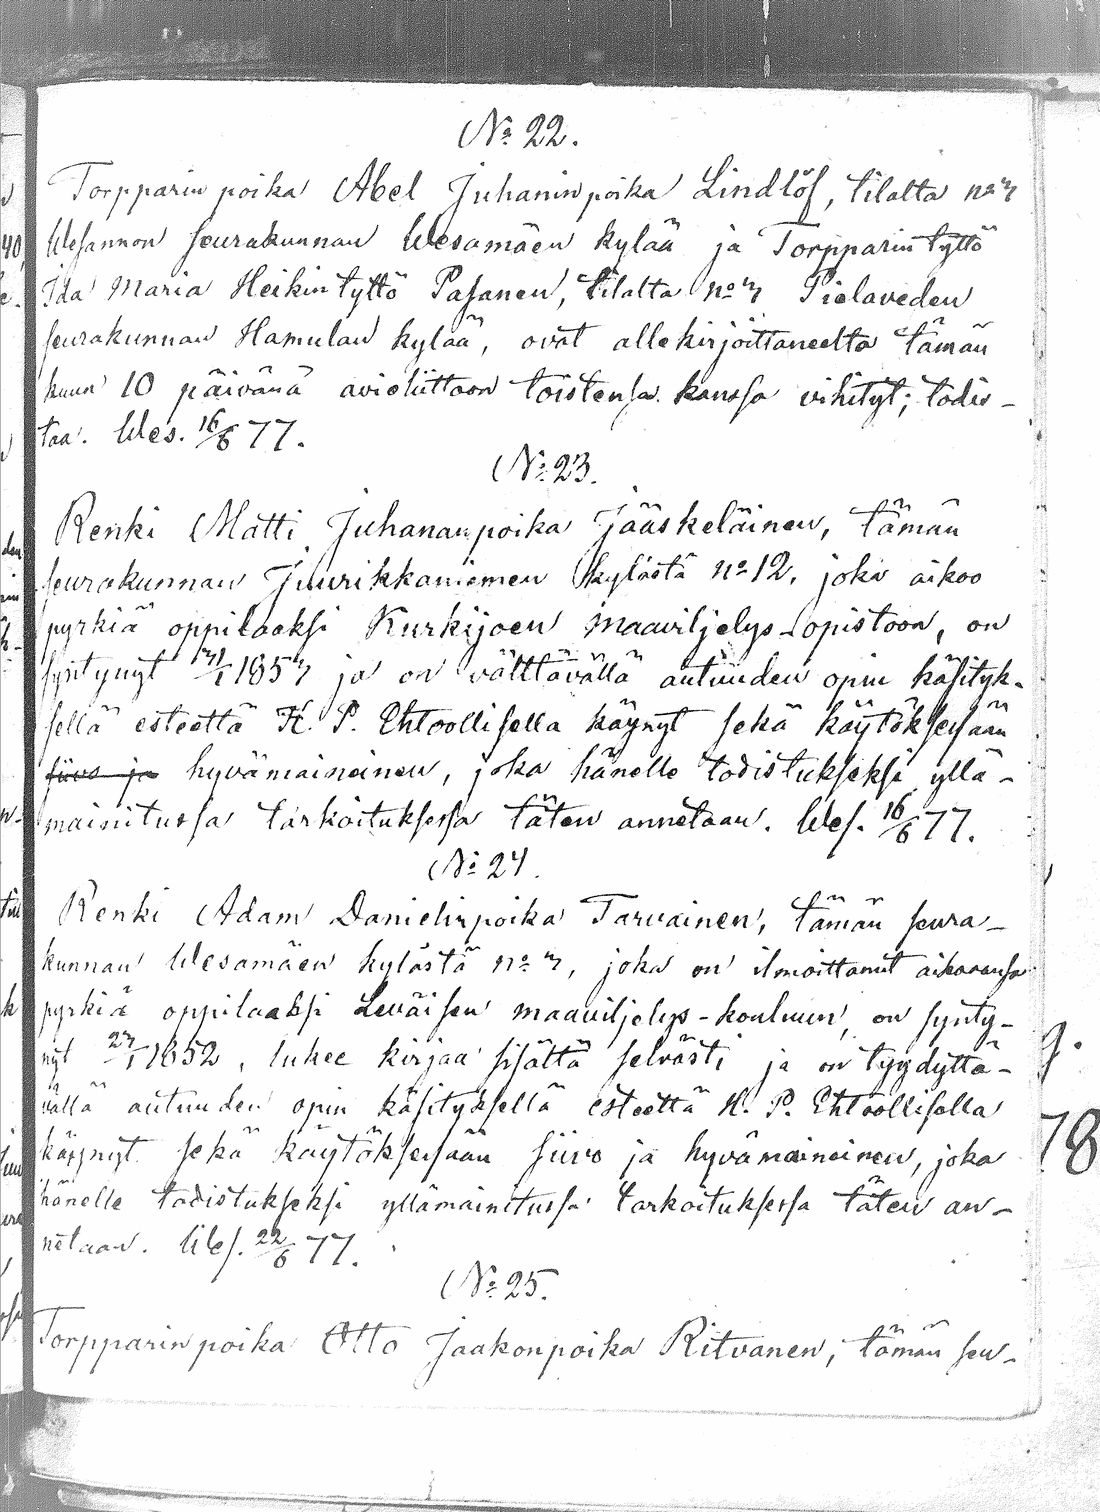 No 22.
Torpparin poika Abel Juhaninpoika Lindlöf, tilalta no 7
Wesannon seurakunnan Wesamäen kylää ja Torpparin tyttö
Ida Maria Heikin tyttö Pasanen, tilalta no 7 Pielaveden
seurakunnan Hamulan kylää, ovat allekirjoittaneelta tämän
kuun 10 päivänä avioliittoon toistensa kanssa vihityt; todis-
taa. Wes. 16/6 77.
No 23.
Renki Matti Juhananpoika Jääskeläinen, tämän
seurakunnan Juurikkaniemen kylästä no 12, joka aikoo
pyrkiä oppilaaksi Kurkijoen maaviljelys-opistoon, on
syntynyt /1 1857 ja on välttävällä autuuden opin käsityk-
sellä esteettä H. P. Ehtoollisella käynyt sekä käytöksessään
siivo ja hyvämaineinen, joka hänelle todistukseksi yllä-
mainitussa tarkoituksessa täten annetaan. Wes. 16/6 77.
No 24.
Renki Adam Danielinpoika Tarvainen, tämän seura-
kunnan Wesamäen kylästä no 7, joka on ilmoittanut aikovansa
pyrkiä oppilaaksi Leväisen maaviljelys-kouluun, on synty-
nyt 27/1 1852, lukee kirjaa sisältä selvästi ja on tyydyttä-
vällä autuuden opin käsityksellä esteettä H. P. Ehtoollisella
käynyt sekä käytöksessään siivo ja hyvämaineinen, joka
hänelle todistukseksi yllämainitussa tarkoituksessa täten an-
netaan. Wes. 22/6 77.
No 25.
Torpparin poika Otto Jaakonpoika Ritvanen, tämän seu-
78